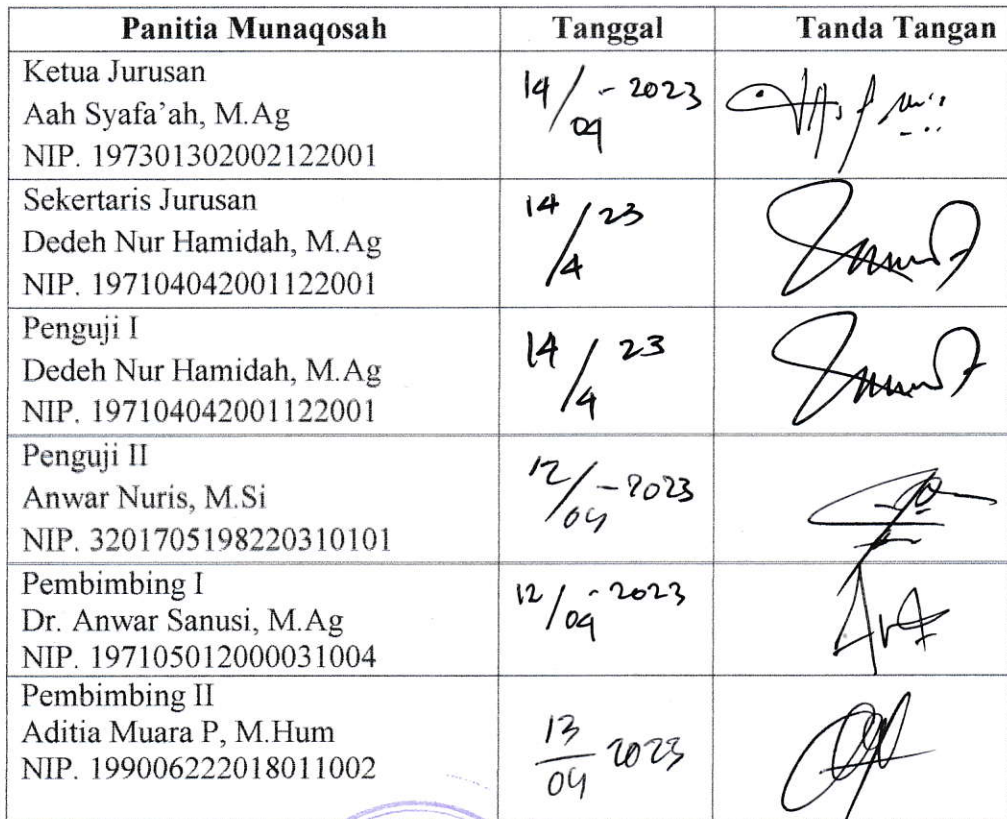 Panitia Munaqosah Tanggal Tanda Tangan
Ketua Jurusan
Aah Syafa'ah, M.Ag
NIP. 197301302002122001
14/04-2023
Sekertaris Jurusan
Dedeh Nur Hamidah, M.Ag
NIP. 197104042001122001
14/4 23
Penguji I
Dedeh Nur Hamidah, M.Ag
NIP. 197104042001122001
14/4 23
Penguji II
Anwar Nuris, M.Si
NIP. 3201705198220310101
12/04-2023
Pembimbing I
Dr. Anwar Sanusi, M.Ag
NIP. 197105012000031004
12/04-2023
Pembimbing II
Aditia Muara P, M.Hum
NIP. 199006222018011002
13/04 2023